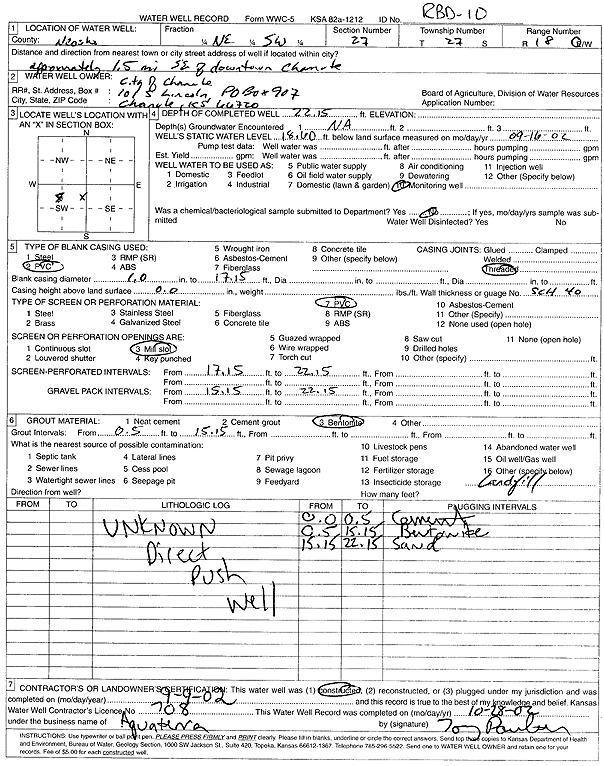 WATER WELL RECORD Form WWC-5 KSA 82a-1212 ID No. RBD-10
1 LOCATION OF WATER WELL: Fraction Section Number Township Number Range Number
County: Neosho ¼ NE ¼ SW ¼ 27 T 27 S R 18 E/W
Distance and direction from nearest town or city street address of well if located within city?
approximately 1.5 mi SE of downtown Chanute
2 WATER WELL OWNER: City of Chanute
RR#, St. Address, Box # : 101 S Lincoln, PO Box 907 Board of Agriculture, Division of Water Resources
City, State, ZIP Code : Chanute, KS 66720 Application Number:
3 LOCATE WELL'S LOCATION WITH AN "X" IN SECTION BOX:
N
NW NE
W E
X
SW SE
S
4 DEPTH OF COMPLETED WELL 22.15 ft. ELEVATION:
Depth(s) Groundwater Encountered 1 N/A ft. 2 ft. 3 ft.
WELL'S STATIC WATER LEVEL 18.60 ft. below land surface measured on mo/day/yr 09-16-02
Pump test data: Well water was ft. after hours pumping gpm
Est. Yield gpm: Well water was ft. after hours pumping gpm
WELL WATER TO BE USED AS: 5 Public water supply 8 Air conditioning 11 Injection well
1 Domestic 3 Feedlot 6 Oil field water supply 9 Dewatering 12 Other (Specify below)
2 Irrigation 4 Industrial 7 Domestic (lawn & garden) 10 Monitoring well
Was a chemical/bacteriological sample submitted to Department? Yes No ; If yes, mo/day/yrs sample was submitted Water Well Disinfected? Yes No
5 TYPE OF BLANK CASING USED: 5 Wrought iron 8 Concrete tile CASING JOINTS: Glued Clamped
1 Steel 3 RMP (SR) 6 Asbestos-Cement 9 Other (specify below) Welded
2 PVC 4 ABS 7 Fiberglass Threaded
Blank casing diameter 1.0 in. to 17.15 ft., Dia in. to ft., Dia in. to ft.
Casing height above land surface 0.0 in., weight lbs./ft. Wall thickness or guage No. SCH 40
TYPE OF SCREEN OR PERFORATION MATERIAL: 7 PVC 10 Asbestos-Cement
1 Steel 3 Stainless Steel 5 Fiberglass 8 RMP (SR) 11 Other (Specify)
2 Brass 4 Galvanized Steel 6 Concrete tile 9 ABS 12 None used (open hole)
SCREEN OR PERFORATION OPENINGS ARE: 5 Guazed wrapped 8 Saw cut 11 None (open hole)
1 Continuous slot 3 Mill slot 6 Wire wrapped 9 Drilled holes
2 Louvered shutter 4 Key punched 7 Torch cut 10 Other (specify) ft.
SCREEN-PERFORATED INTERVALS: From 17.15 ft. to 22.15 ft., From ft. to ft.
From ft. to ft., From ft. to ft.
GRAVEL PACK INTERVALS: From 15.15 ft. to 22.15 ft., From ft. to ft.
From ft. to ft., From ft. to ft.
6 GROUT MATERIAL: 1 Neat cement 2 Cement grout 3 Bentonite 4 Other
Grout Intervals: From 0.5 ft. to 15.15 ft., From ft. to ft., From ft. to ft.
What is the nearest source of possible contamination: 10 Livestock pens 14 Abandoned water well
1 Septic tank 4 Lateral lines 7 Pit privy 11 Fuel storage 15 Oil well/Gas well
2 Sewer lines 5 Cess pool 8 Sewage lagoon 12 Fertilizer storage 16 Other (specify below)
3 Watertight sewer lines 6 Seepage pit 9 Feedyard 13 Insecticide storage Landfill
Direction from well? How many feet?
FROM TO LITHOLOGIC LOG FROM TO PLUGGING INTERVALS
UNKNOWN 0.0 0.5 Cement
0.5 15.15 Bentonite
Direct 15.15 22.15 Sand
Push
Well
7 CONTRACTOR'S OR LANDOWNER'S CERTIFICATION: This water well was (1) constructed, (2) reconstructed, or (3) plugged under my jurisdiction and was
completed on (mo/day/year) 9-9-02 and this record is true to the best of my knowledge and belief. Kansas
Water Well Contractor's Licence No 708 This Water Well Record was completed on (mo/day/yr) 10-28-02
under the business name of Aquaterra by (signature)
INSTRUCTIONS: Use typewriter or ball point pen. PLEASE PRESS FIRMLY and PRINT clearly. Please fill in blanks, underline or circle the correct answers. Send top three copies to Kansas Department of Health
and Environment, Bureau of Water, Geology Section, 1000 SW Jackson St., Suite 420, Topeka, Kansas 66612-1367. Telephone 785-296-5522. Send one to WATER WELL OWNER and retain one for your
records. Fee of $5.00 for each constructed well.